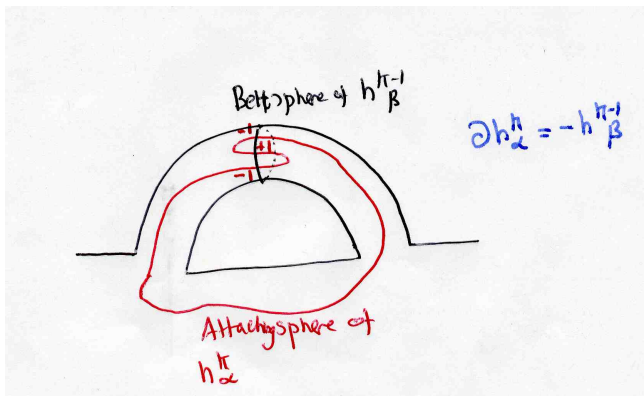 Beltsphere of h^{π-1}_β
∂h^π_α = -h^{π-1}_β
-1
+1
-1
Attachingsphere of
h^π_α